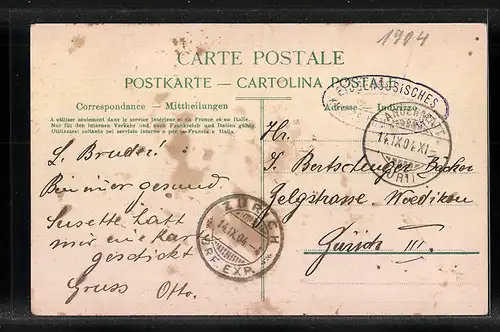 1904
CARTE POSTALE
POSTKARTE - CARTOLINA POSTALE
Correspondance - Mittheilungen
Adresse - Indirizzo
A utiliser seulement dans le service intérieur et en France et en Italie.
Nur für den internen Verkehr und nach Frankreich und Italien gültig.
Utilizzarsi soltanto nel servizio interno e per la Francia e l'Italia.
EIDGENÖSSISCHES
ANDERMATT
14.IX.04.XI
(URI)
L. Bruder!
Bin immer gesund.
Susette hatt
mir eine Karte
geschickt
Gruss Otto.
ZÜRICH
14.IX.04
BRF. EXP.
Hr.
J. Bertschinger Bäcker
Zelgstrasse Wiedikon
Zürich III.